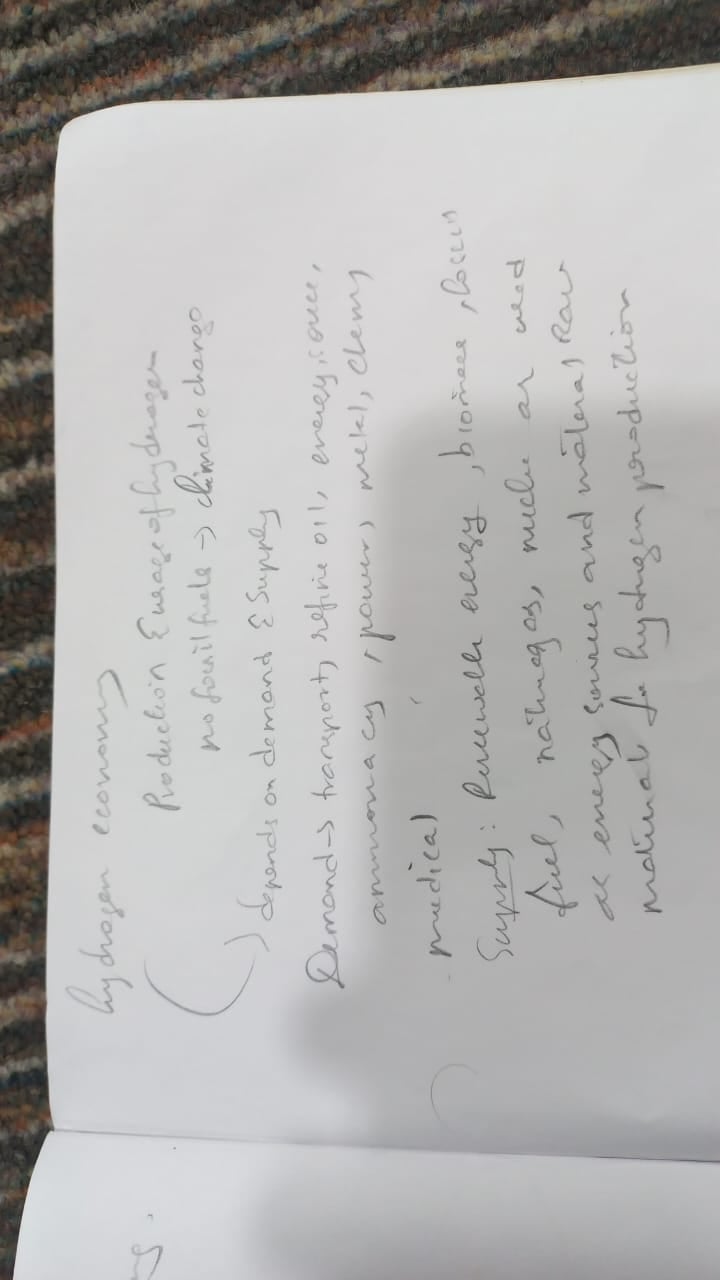 hydrogen economy
Production & usage of hydrogen
no fossil fuels → climate change
depends on demand & Supply
Demand → transport, refine oil, energy source,
ammonacy, power, metal, chemy
medical
Supply: Renewable energy, biomass,
fuel, naturegas, nuclear are used
as energy sources and material Raw
material for hydrogen production